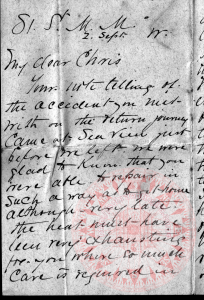 81. St M. M.
2. Sept
My dear Chris
Your note telling of
the accident you met
with on the return journey
came at Sea View just
before we left we were
glad to know that you
were able to repair in
such a way as to get home
although very late.
The heat must have
been very exhausting
for you where so much
care is required in